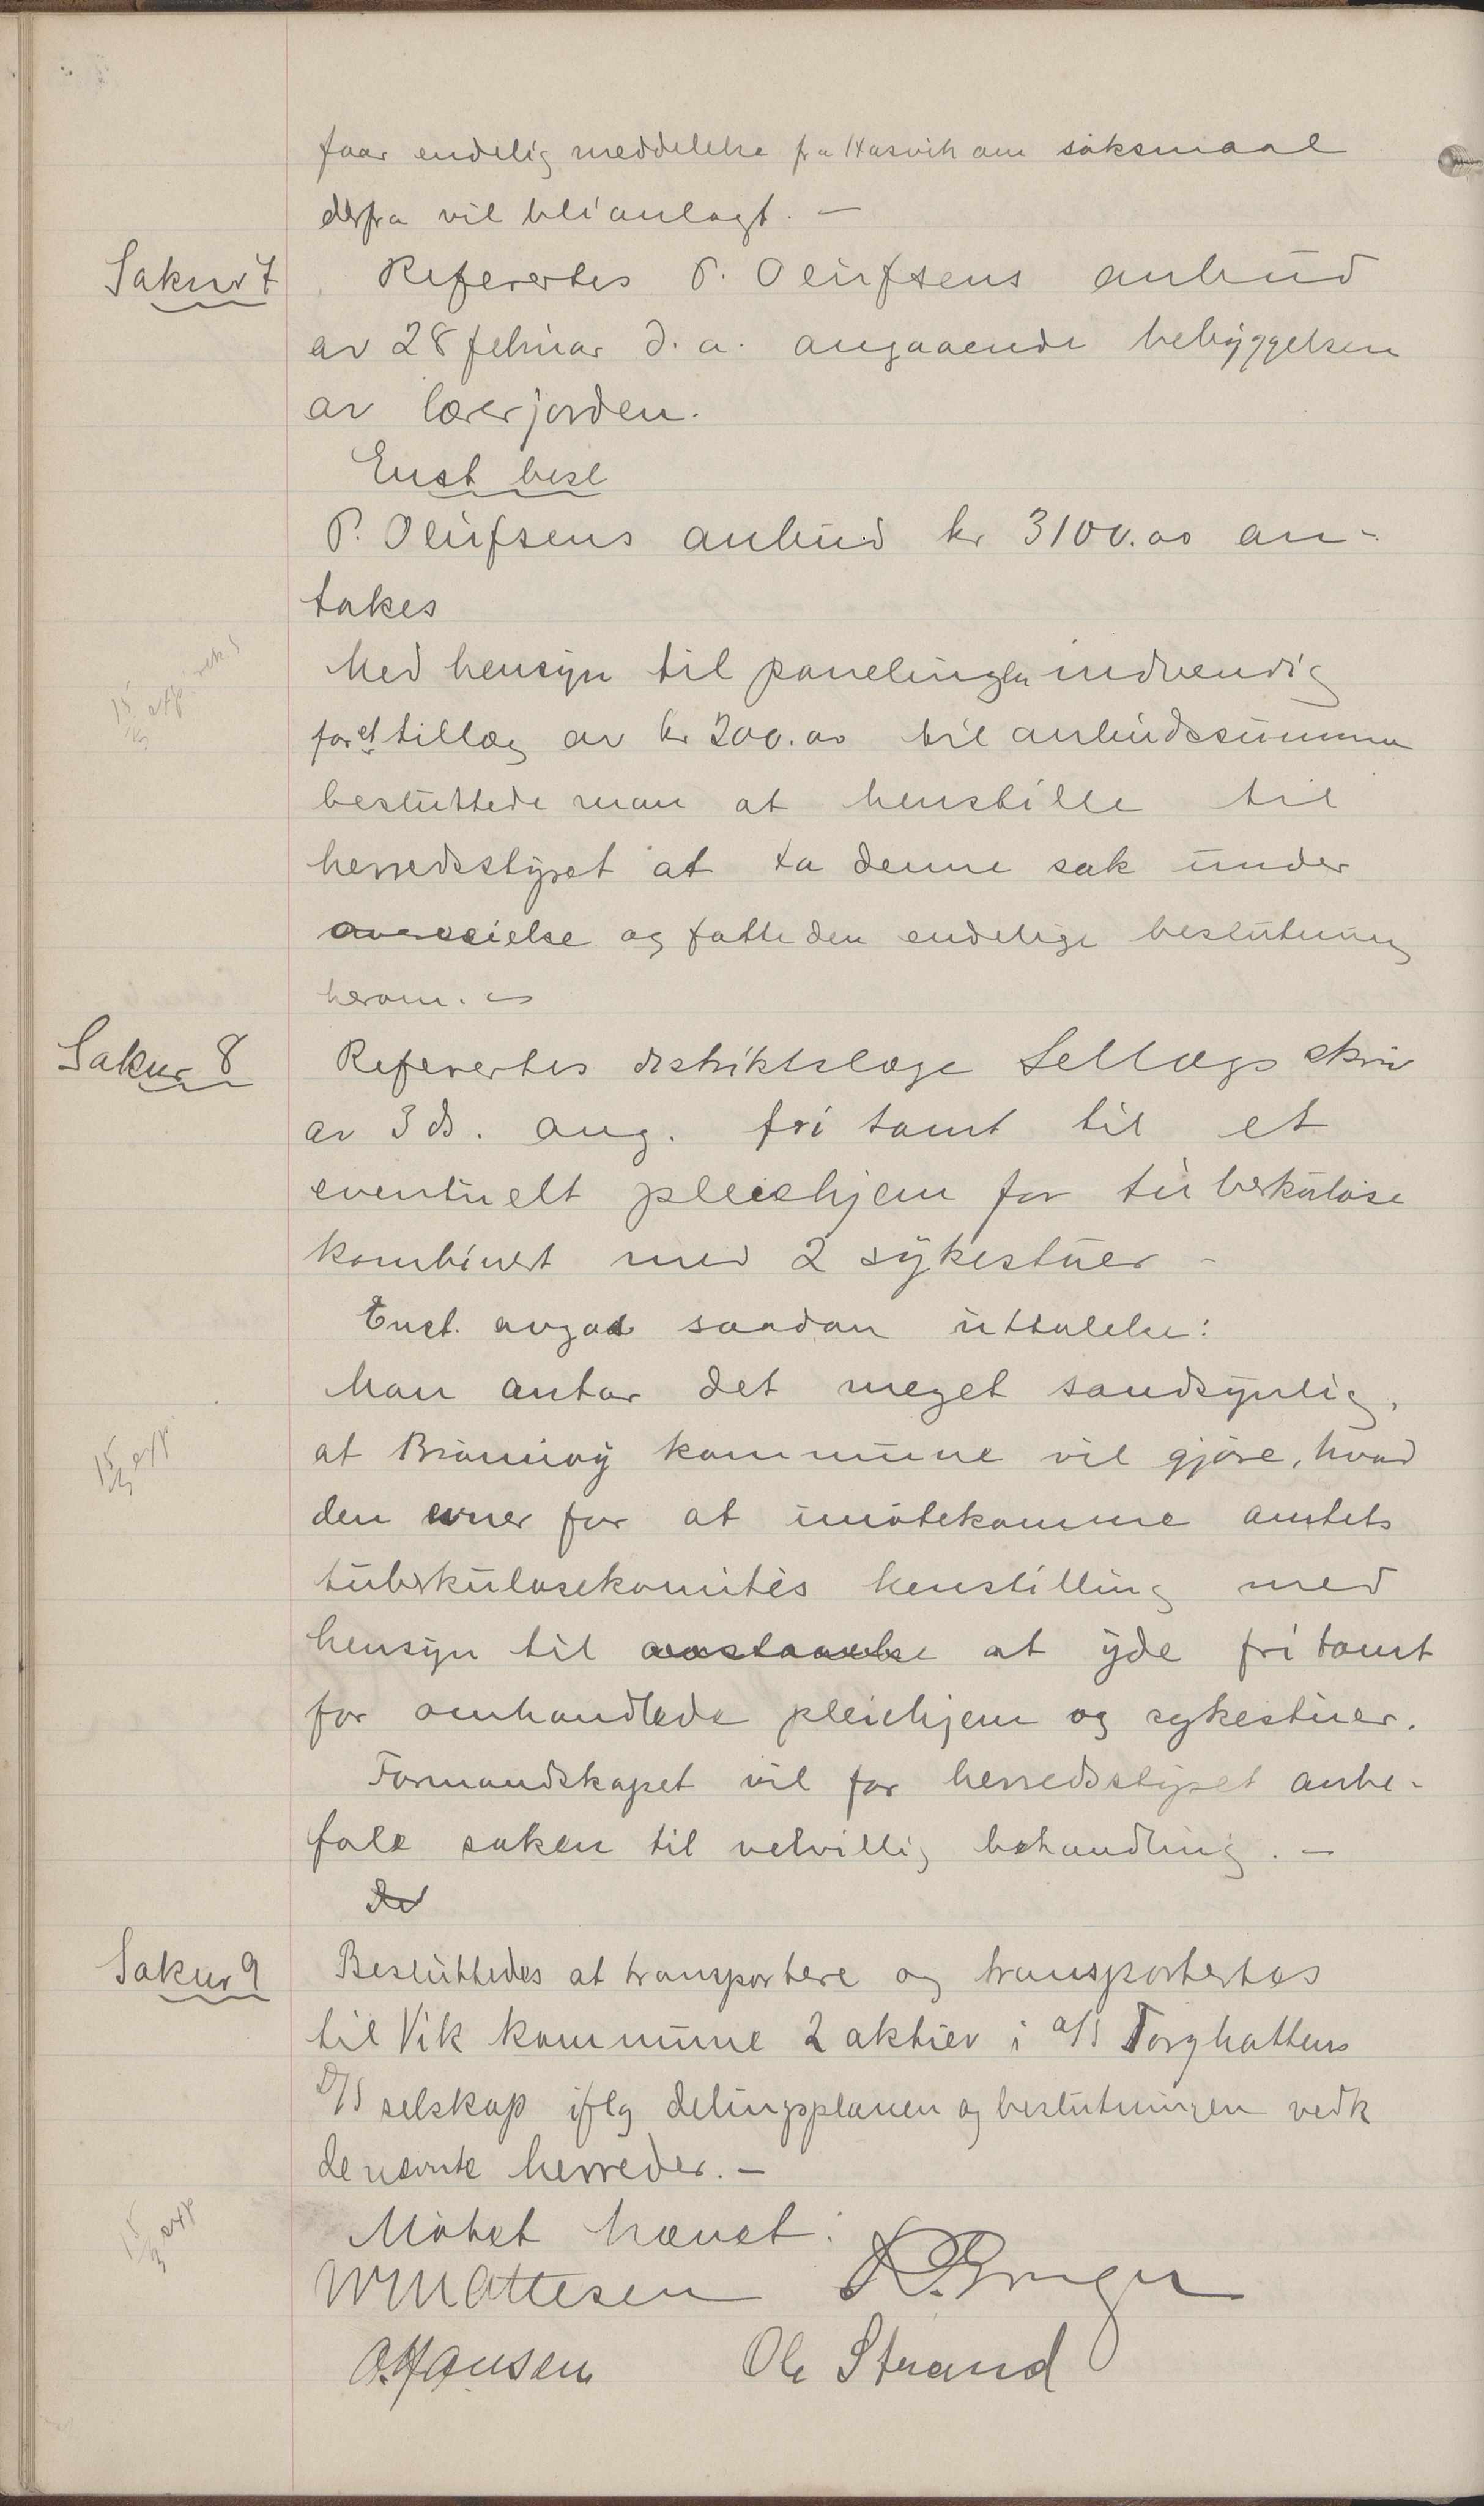 faar endelig meddelelse fra Hasvik om søksmaal
derfra vil bli anlagt. —
Saknr 7
Referertes P. Olufsens anbud
av 28 februar d. a. angaaende bebyggelsen
av lærerjorden.
Enst besl
P. Olufsens anbud kr 3100.00 an-
takes
Med hensyn til paneling indvendig
for et tillæg av kr 200.00 til anbudssummen
15/3 exp.
besluttede man at henstille til
herredsstyret at ta denne sak under
og fatte den endelige beslutning
herom. —
Saknr 8
Referertes distriktslæge Sellægs skriv
av 3 ds. ang. fri tomt til et
eventuelt pleiehjem for tuberkuløse
kombinert med 2 sykestuer –
Enst. avgad saadan uttalelse:
Man antar det meget sandsynlig,
at Brønnøy kommune vil gjøre, hvad
15/3 exp.
den evner for at imøtekomme amtets
tuberkulosekomités henstilling med
hensyn til avstaaelse at yde fri tomt
for omhandlede pleiehjem og sykestuer.
Formandskapet vil for herredsstyret anbe-
fale saken til velvillig behandling. —
De
Saknr 9
Besluttedes at transportere og transportertes
til Vik kommune 2 aktier i a/s Torghattens
D/S selskap iflg delingsplanen og beslutningen vedk
de nævnte herreder. —
15/3 exp
Møtet hævet.
W Mattesen
O. Hansen Ole Strand